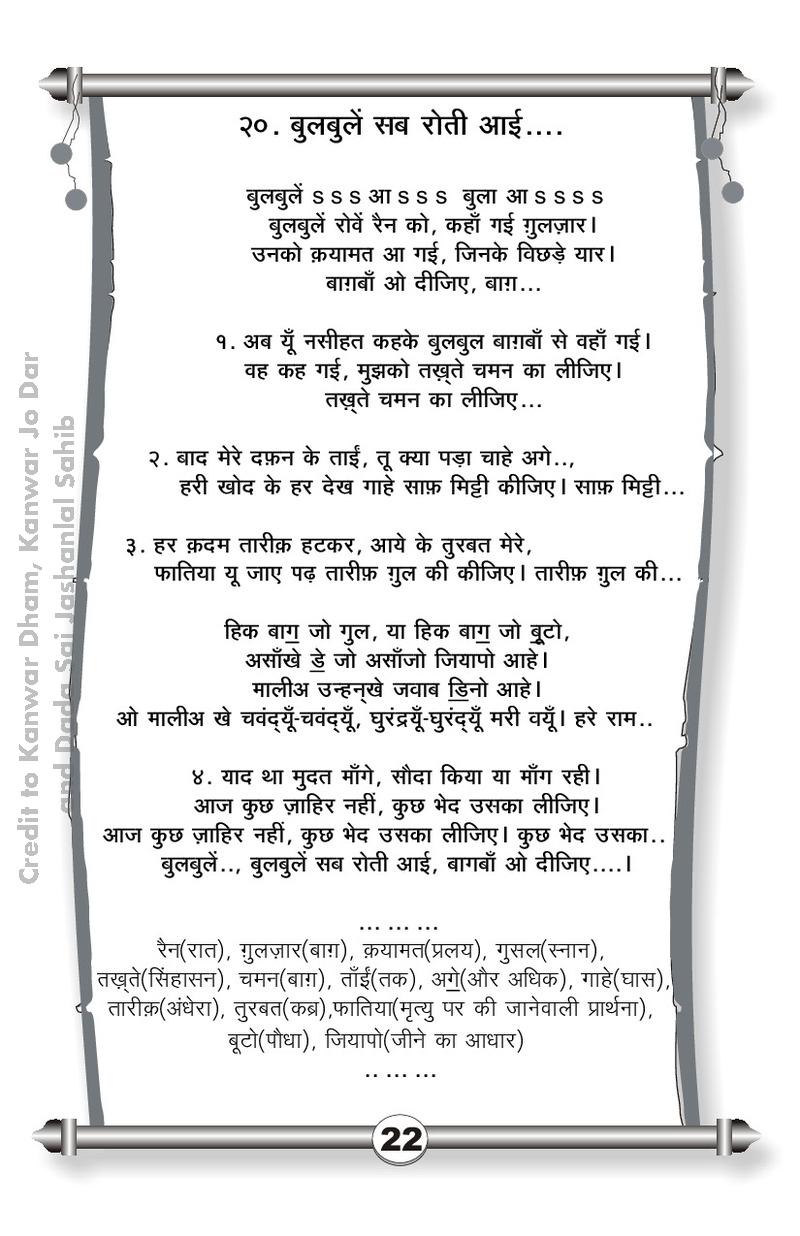 २०. बुलबुलें सब रोती आई....
बुलबुलें s s s आ s s s बुला आ s s s s
बुलबुलें रोवें रैन को, कहाँ गई ग़ुलज़ार।
उनको क़यामत आ गई, जिनके विछड़े यार।
बाग़बाँ ओ दीजिए, बाग़...
१. अब यूँ नसीहत कहके बुलबुल बाग़बाँ से वहाँ गई।
वह कह गई, मुझको तख़्ते चमन का लीजिए।
तख़्ते चमन का लीजिए...
२. बाद मेरे दफ़न के ताईं, तू क्या पड़ा चाहे अगे..,
हरी खोद के हर देख गाहे साफ़ मिट्टी कीजिए। साफ़ मिट्टी...
३. हर क़दम तारीक़ हटकर, आये के तुरबत मेरे,
फातिया यू जाए पढ़ तारीफ़ ग़ुल की कीजिए। तारीफ़ ग़ुल की...
हिक बाग॒ जो गुल, या हिक बाग॒ जो बूटो,
असाँखे डे॒ जो असाँजो जियापो आहे।
मालीअ उन्हन्खे जवाब डि॒नो आहे।
ओ मालीअ खे चवंद्यूँ-चवंद्यूँ, घुरंद्रयूँ-घुरंद्यूँ मरी वयूँ। हरे राम..
४. याद था मुदत माँगे, सौदा किया या माँग रही।
आज कुछ ज़ाहिर नहीं, कुछ भेद उसका लीजिए।
आज कुछ ज़ाहिर नहीं, कुछ भेद उसका लीजिए। कुछ भेद उसका..
बुलबुलें.., बुलबुलें सब रोती आई, बागबाँ ओ दीजिए....।
... ... ...
रैन(रात), ग़ुलज़ार(बाग़), क़यामत(प्रलय), गुसल(स्नान),
तख़्ते(सिंहासन), चमन(बाग़), ताँईं(तक), अगे॒(और अधिक), गाहे(घास),
तारीक़(अंधेरा), तुरबत(कब्र),फातिया(मृत्यु पर की जानेवाली प्रार्थना),
बूटो(पौधा), जियापो(जीने का आधार)
.. ... ...
22
Credit to Kanwar Dham, Kanwar Jo Dar
and Dada Sai Jashanlal Sahib